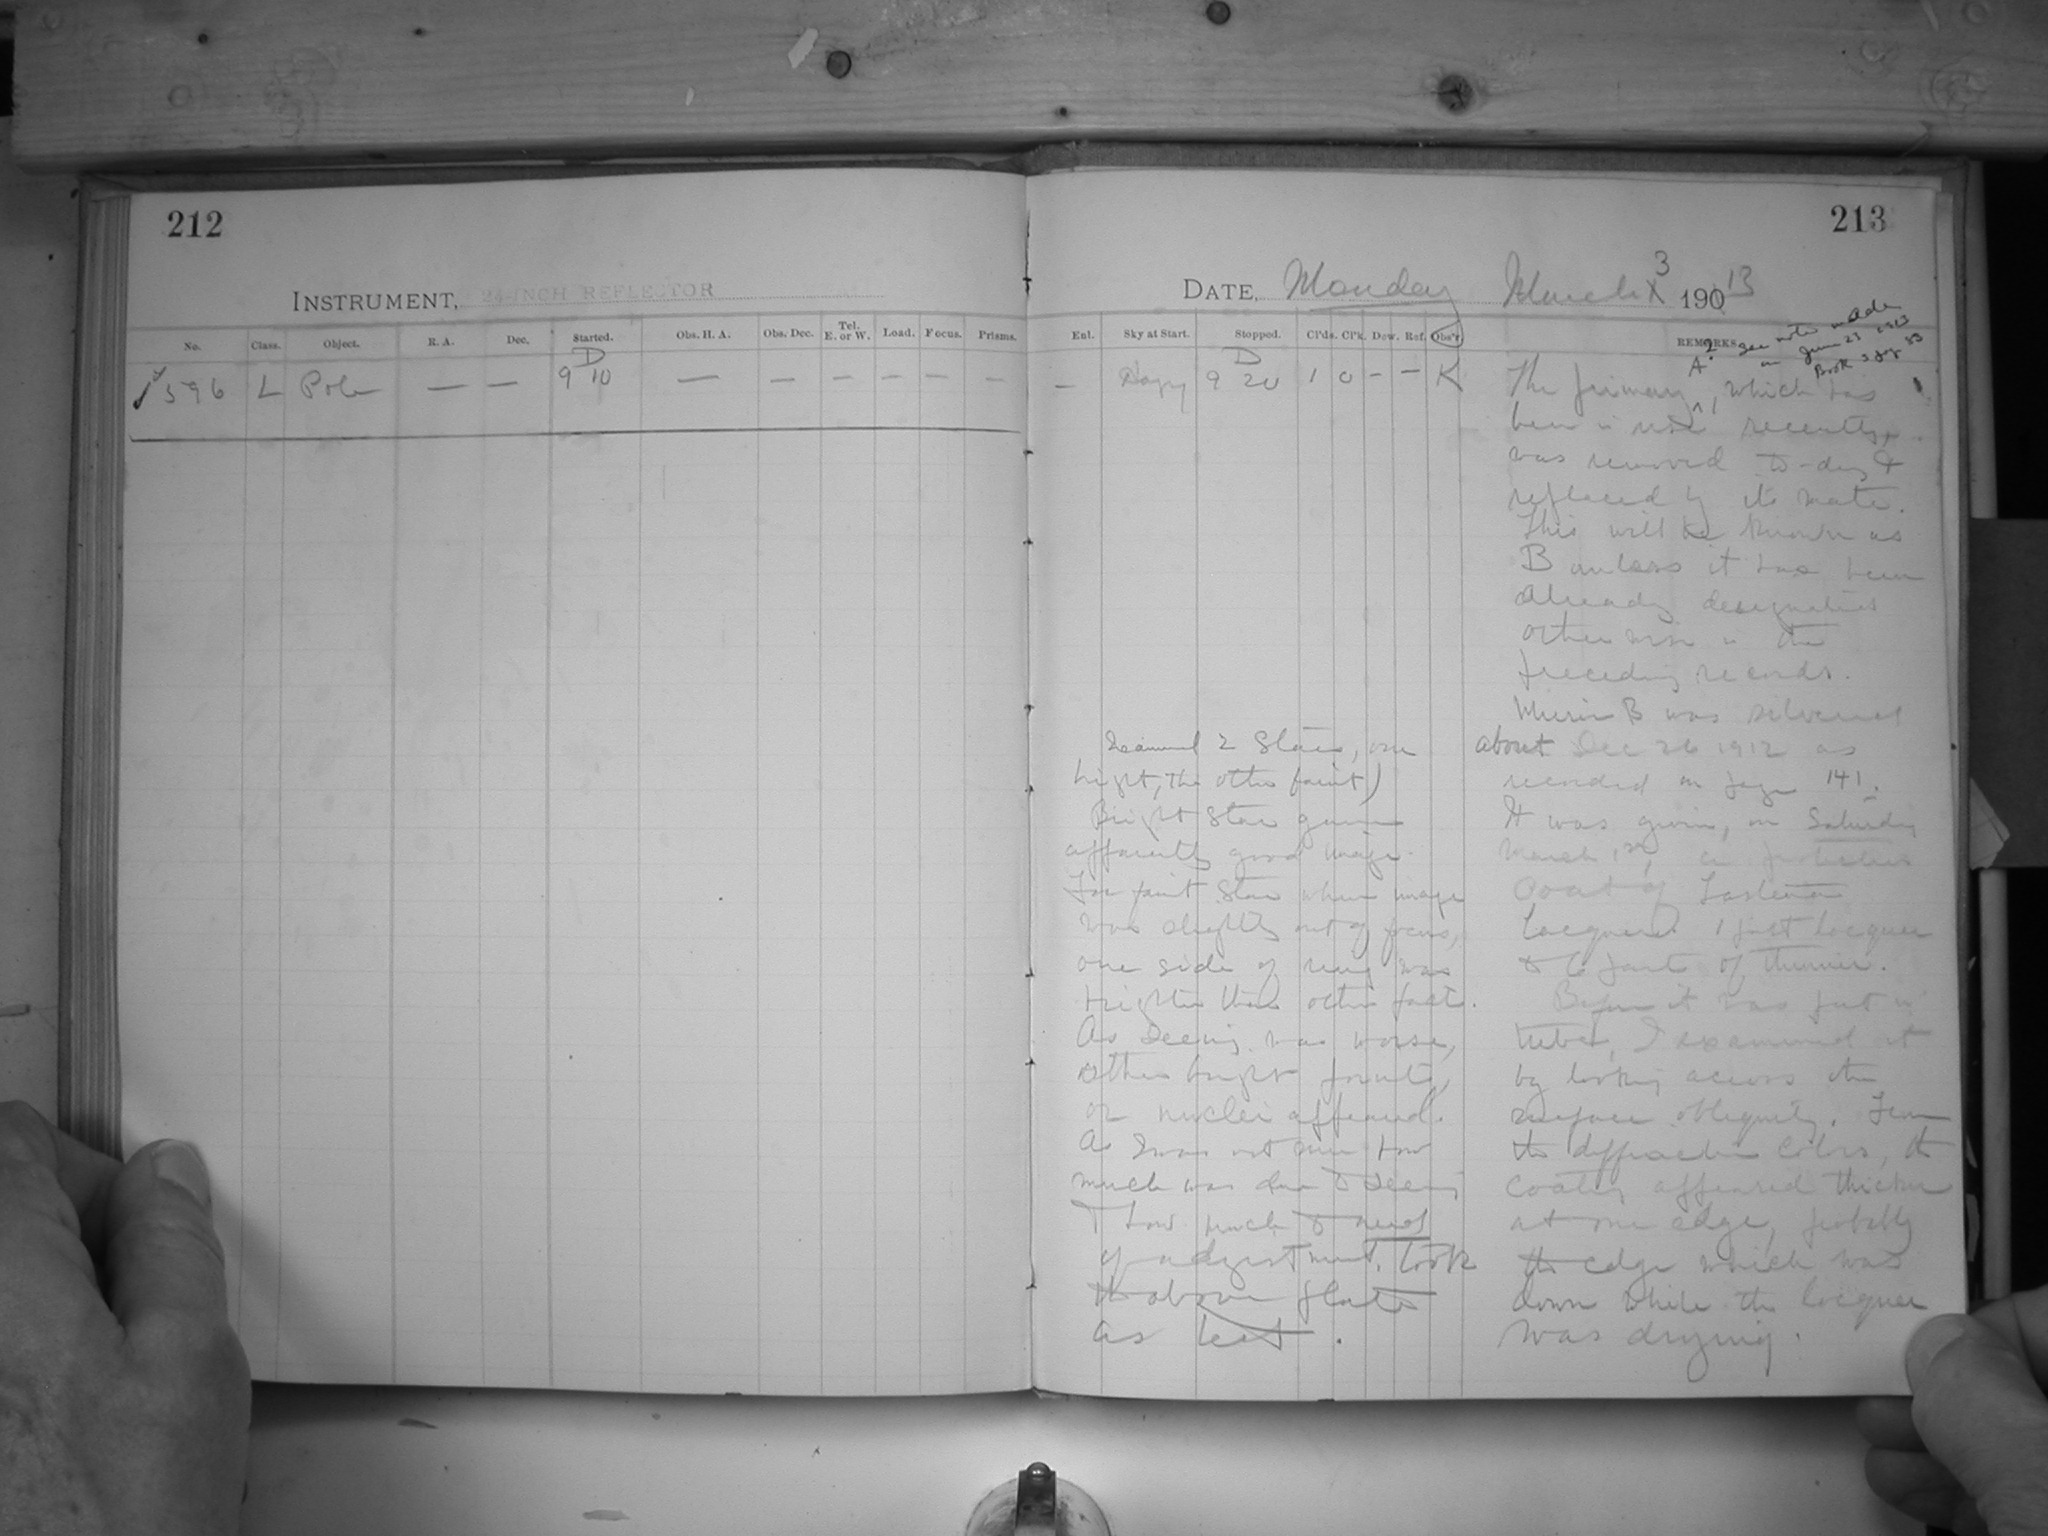 212
INSTRUMENT, 24-INCH REFLECTOR
No. Class. Object. R. A. Dec. Started. Obs. H. A. Obs. Dec. Tel. E. or W. Load. Focus. Prisms.
596 L Pole — — D 9 10 — — — — — —
213
DATE, Monday March 3 1913
Ent. Sky at Start. Stopped. Cl'ds. Cl'k. Dew. Ref. Obs'r. REMARKS.
A? see note made
on June 23 1913
Book 5 pg 53
— Hazy D 9 20 1 0 – – K
The primary, which has
been in use recently,
was removed to-day &
replaced by its mate.
This will be known as
B unless it has been
already designated
otherwise in the
preceding records.
Mirror B was silvered
about Dec 26 1912 as
recorded on page 141.
It was given, on Saturday
March 1st, a protective
coat of
Lacquer. 1 part lacquer
to 6 parts of thinner.
Before it was put in
tube, I examined it
by looking across the
surface obliquely. From
the diffraction colors, the
coating appeared thicker
at one edge, probably
the edge which was
down while the lacquer
was drying.
Examined 2 Stars, one
bright, the other faint)
Bright Star gave
apparently good image.
For faint Star when image
was slightly out of focus,
one side of ring was
brighter than other part.
As Seeing was worse,
other bright points,
or nuclei appeared.
As I was not sure how
much was due to seeing
& how much to need
of adjustment, took
the above plate
as test.